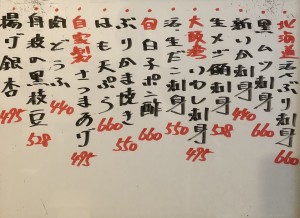 北海道活つぶり刺身 660
黒ムツ刺身 660
新りか刺身 528
生メサバ刺身 440
大阪産いわし刺身 495
活生だこ刺身 550
旬白子ポン酢 660
ぶりかま焼き 550
はも天ぷら 660
自家製さつまあげ 495
肉どうふ 440
自彼の黒枝豆 528
揚げ銀杏 495